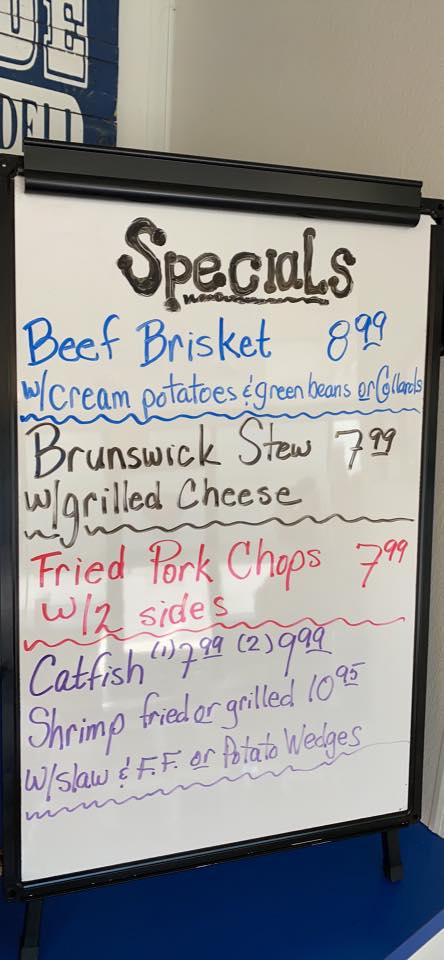 DE
DELL
Specials
Beef Brisket 8.99
w/cream potatoes & green beans or Collards
Brunswick Stew 7.99
w/grilled Cheese
Fried Pork Chops 7.99
w/2 sides
Catfish (1) 7.99 (2) 9.99
Shrimp fried or grilled 10.95
w/slaw & F.F. or Potato Wedges